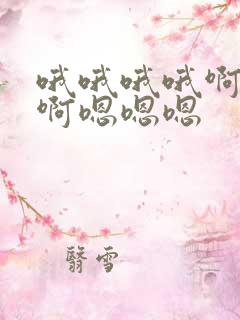 哦哦哦哦啊
啊嗯嗯嗯
翳雪